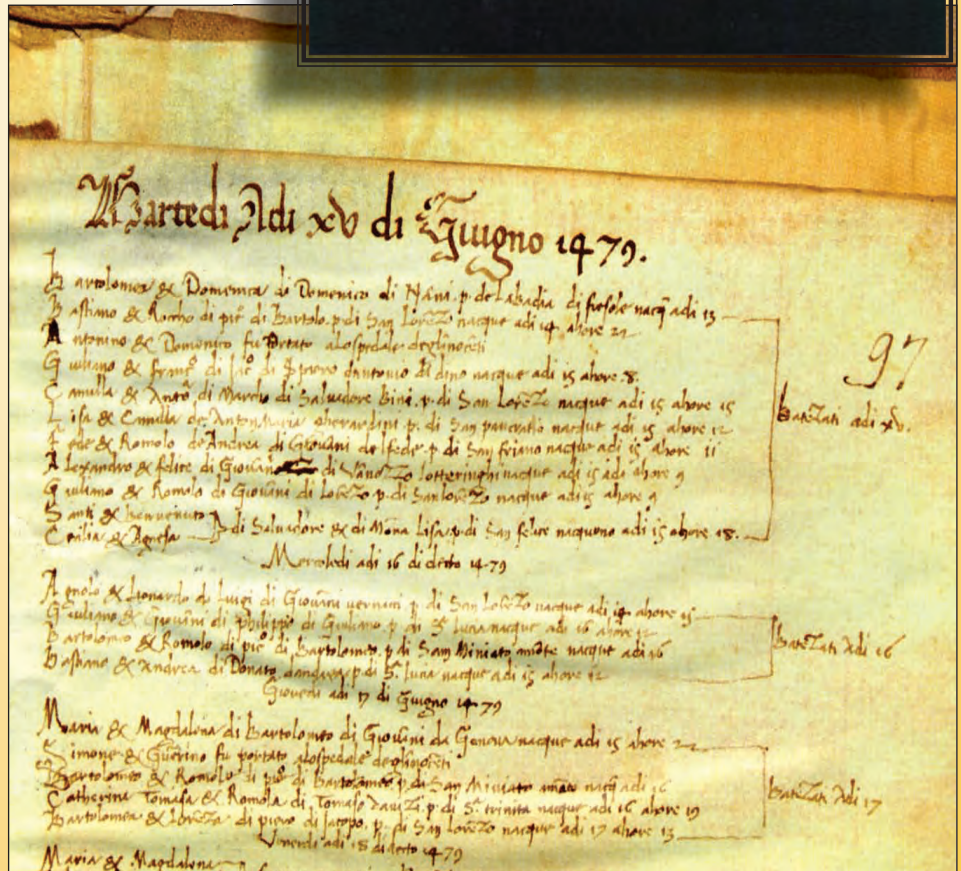 Martedi Adi xv di Giugno 1479.
Bartolomea & Domenica di Domenico di Nanni. p. de Labadia di fiesole nacq adi 13
Bastiano & Roccho di pio di Bartolo. p. di San Lorezo nacque adi 14 ahore 22
Antonino & Domenico fu portato alospedale deglinoceti
Giuliano & franco di Jaco di piero dantonio di dino nacque adi 15 ahore 8.
Camilla & Anto di Marcho di Salvadore Bini. p. di San Lorezo nacque adi 15 ahore 15
Lisa & Camilla de Antonmaria gherardini p. di San pancratio nacque adi 15 ahore 12
Fede & Romolo de Andrea di Giovani p. di San friano nacque adi 15 ahore 11
Alexandro & felice di Giovani di Vanozo lotteringhi nacque adi 15 adi ahore 9
Giuliano & Romolo di Giovani di Lorezo p. di San lorezo nacque adi 15 ahore 9
Santi & benvenuto
Cecilia & Agnesa di Salvadore & di Mona Lisa. p. di San felice nacqueno adi 15 ahore 18.
97
Batezati adi xv.
Mercoledi adi 16 di decto 1479
Agnolo & Lionardo di Luigi di Giovani p. di San Lorezo nacque adi 14 ahore 15
Giuliano & Giovani di philippo di Giuliano p. di Sa Lucia nacque adi 16 ahore 12
Bartolomeo & Romolo di pio di Bartolomeo. p. di San Miniato nacque adi 16
Bastiano & Andrea di Donato p. di Sa Lucia nacque adi 15 ahore 12
Batezati Adi 16
Giovedi adi 17 di Giugno 1479
Maria & Magdalena di Bartolomeo di Giovani da Genova nacque adi 15 ahore 22
Simone & Guerino fu portato alospedale deglinoceti
Bartolomeo & Romolo di pio di Bartolomeo p. di San Miniato nacq adi 16
Catherina Tomasa & Romola di Tomaso davizi. p. di Sa trinita nacque adi 16 ahore 19
Bartolomea & Loreza di piero di Jacopo. p. di San Lorezo nacque adi 17 ahore 13
Batezati Adi 17
Venerdi adi 18 di decto 1479
Maria & Magdalena